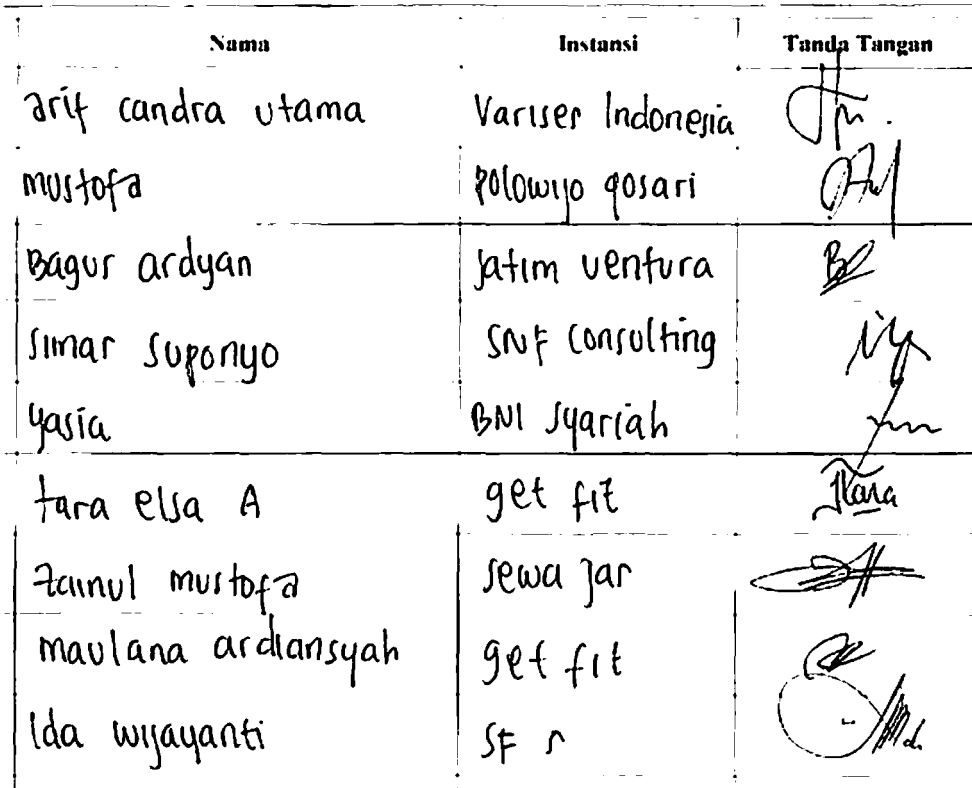 Nama Instansi Tanda Tangan
arif candra utama Variser Indonesia
mustofa polowijo gosari
Bagus ardyan Jatim ventura
simar suponyo SNF consulting
yasia BNI syariah
tara elsa A get fit Tara
zainul mustofa sewa jas
maulana ardiansyah get fit
Ida wijayanti SF